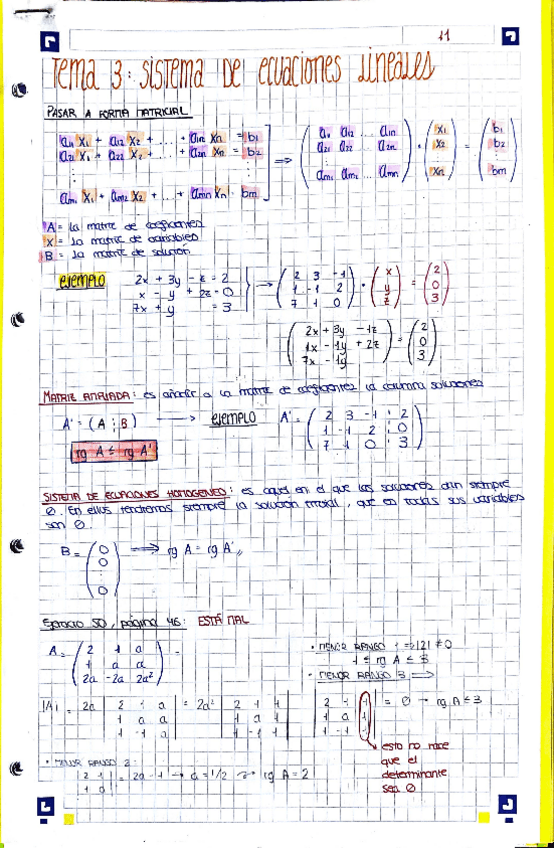 11
Tema 3: sistema de ecuaciones lineales
PASAR A FORMA MATRICIAL
a11 x1 + a12 x2 + ... + a1n xn = b1
a21 x1 + a22 x2 + ... + a2n xn = b2
am1 x1 + am2 x2 + ... + amn xn = bm
⟹ ( a11 a12 ... a1n
a21 a22 ... a2n
am1 am2 ... amn ) · ( x1
x2
xn ) = ( b1
b2
bm )
A = la matriz de coeficientes
X = la matriz de variables
B = la matriz de solución
ejemplo
2x + 3y - z = 2
x - y + 2z = 0
7x + y = 3
→ ( 2 3 -1
1 -1 2
7 1 0 ) · ( x
y
z ) = ( 2
0
3 )
( 2x + 3y - 1z
1x - 1y + 2z
7x - 1y ) = ( 2
0
3 )
MATRIZ AMPLIADA: es añadir a la matriz de coeficientes la columna soluciones
A' = ( A ¦ B ) → ejemplo A' = ( 2 3 -1 ¦ 2
1 -1 2 ¦ 0
7 1 0 ¦ 3 )
rg A ≤ rg A'
SISTEMA DE ECUACIONES HOMOGENEO: es aquel en el que las soluciones dan siempre
0. En ellos tendremos siempre la solución trivial, que en todas sus variables
son 0.
B = ( 0
0
⋮
0 ) ⟹ rg A = rg A'
Ejercicio 50, página 46: ESTÁ MAL
A = ( 2 1 a
1 a a
2a -2a 2a² )
· MENOR RANGO 1 ⟹ |2| ≠ 0
1 ≤ rg A ≤ 3
· MENOR RANGO 3 ⟹
|A| = 2a | 2 1 a
1 a a
1 -1 a | = 2a² | 2 1 1
1 a 1
1 -1 1 |
| 2 1 1
1 a 1
1 -1 1 | = 0 → rg A ≤ 3
esto no hace
que el
determinante
sea 0
· MENOR RANGO 2:
| 2 1
1 a | = 2a - 1 → a = 1/2 → rg A = 2